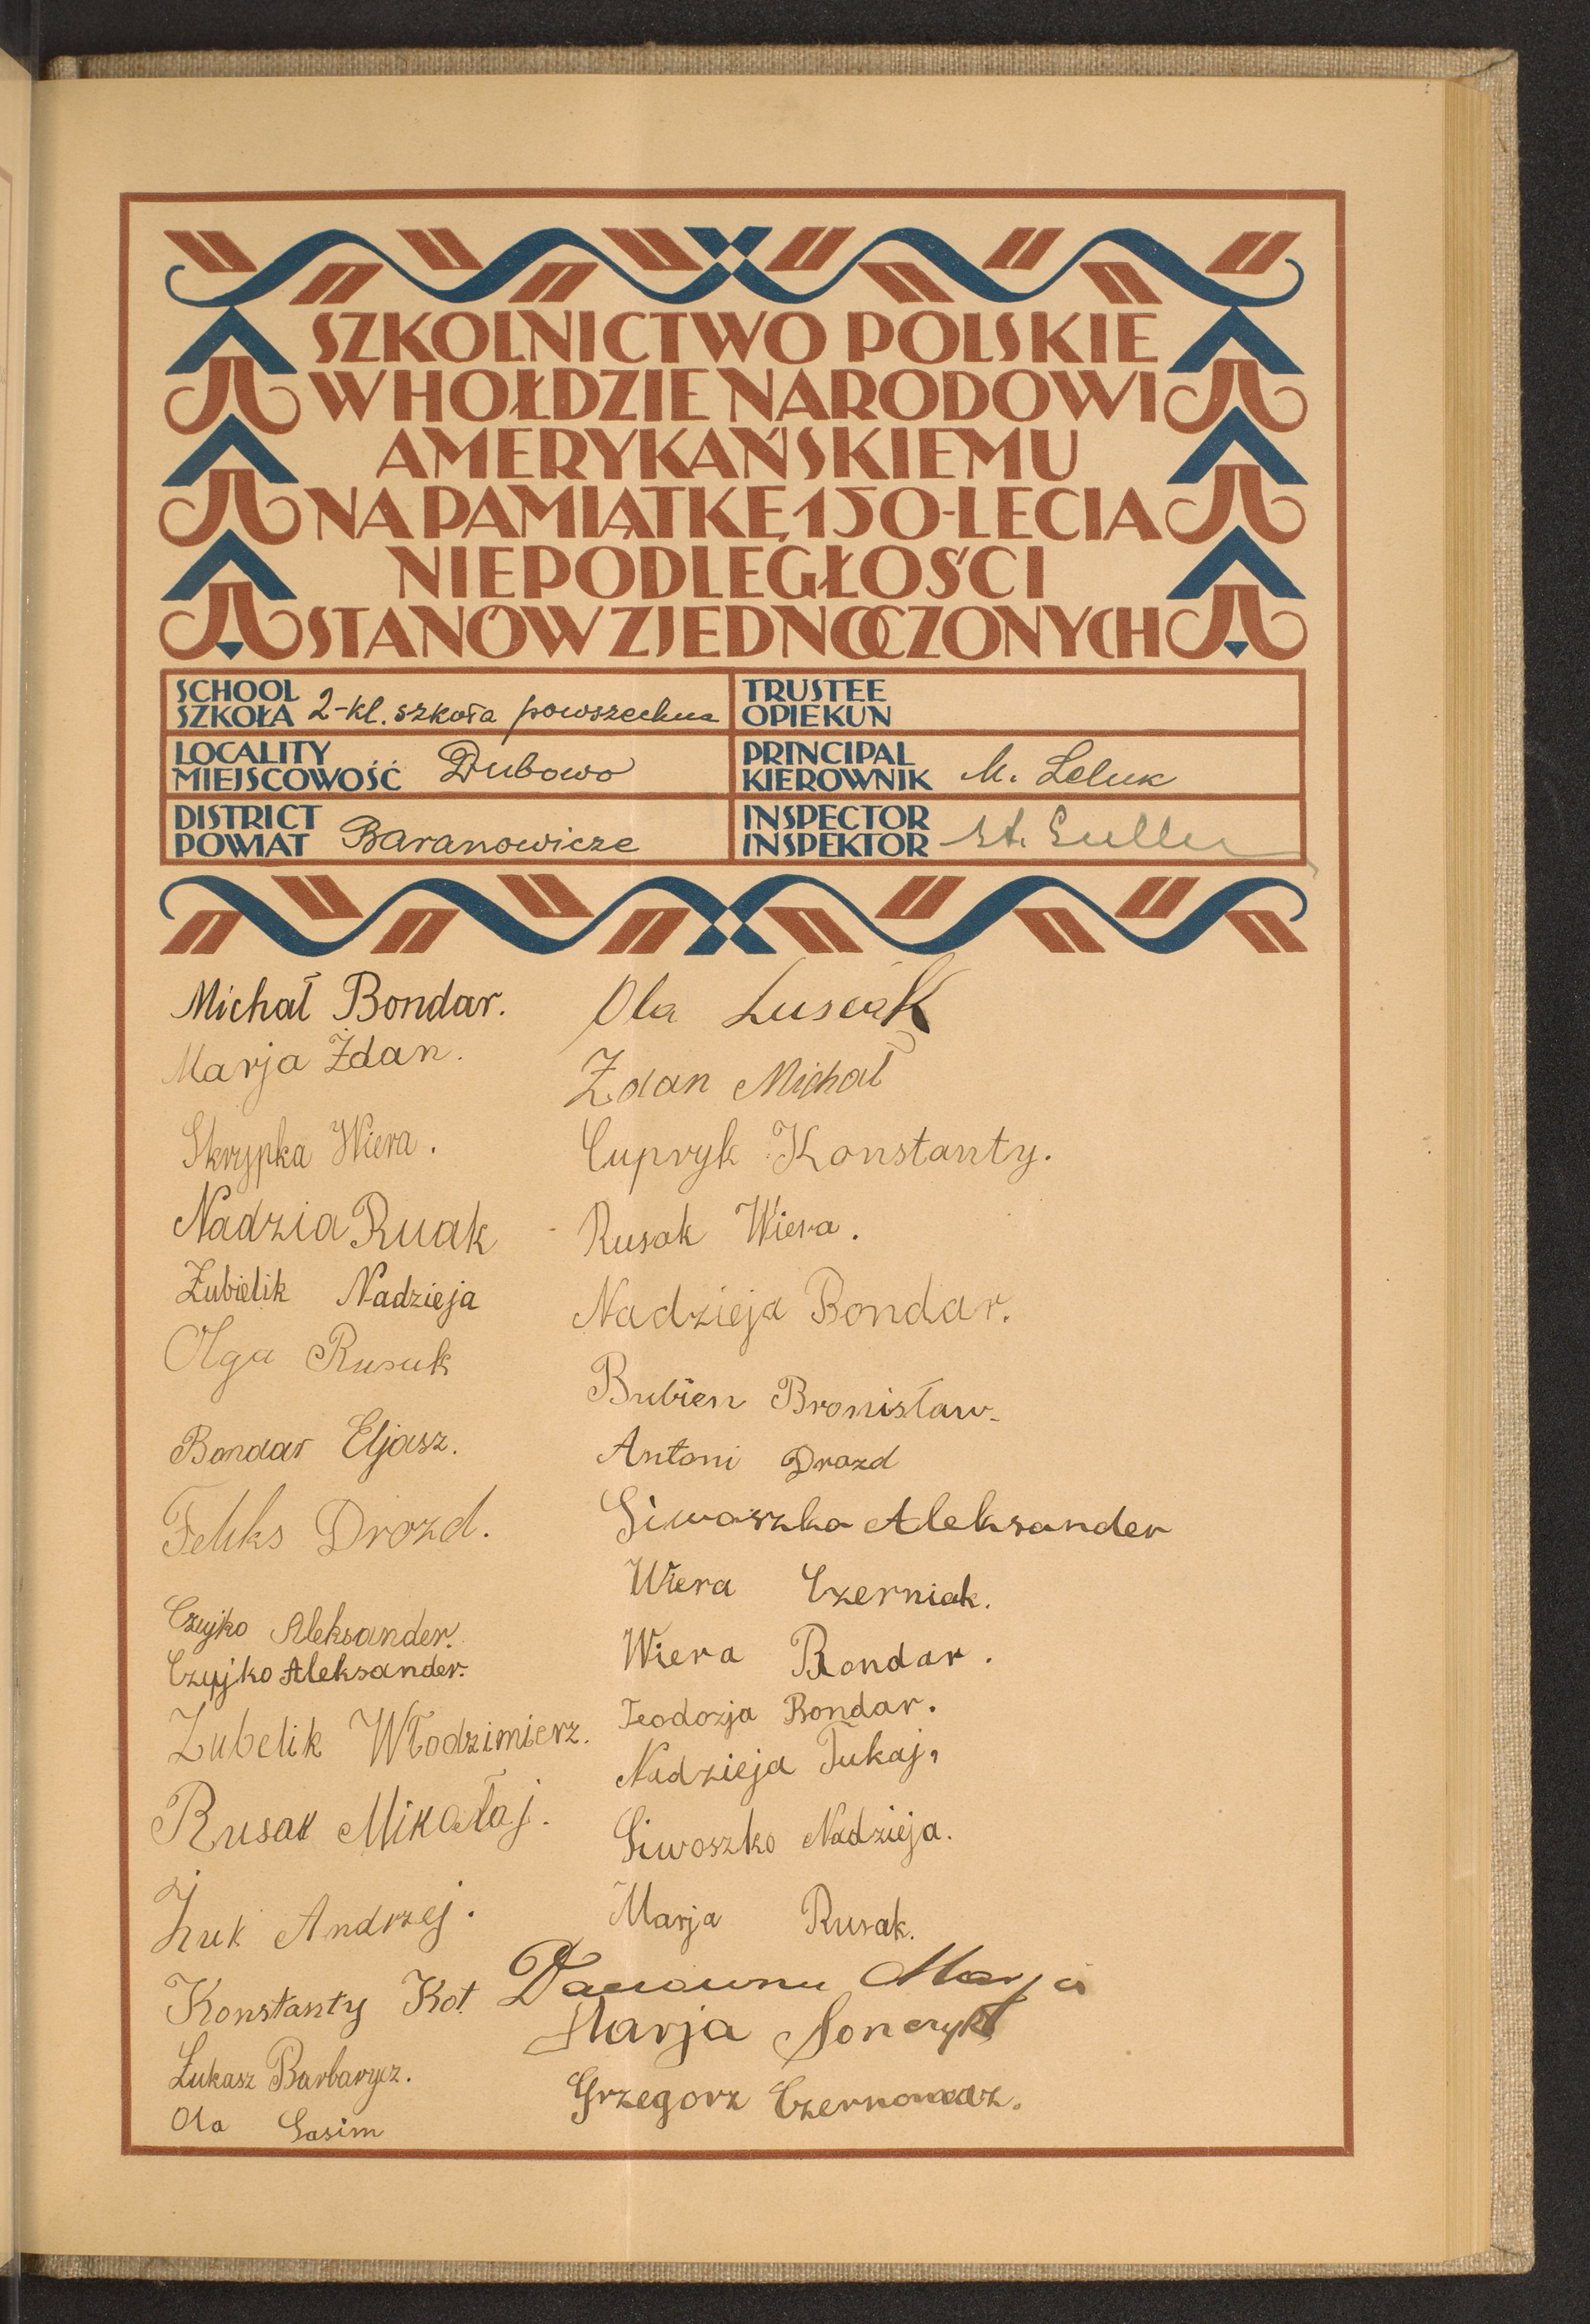 SZKOLNICTWO POLSKIE
W HOŁDZIE NARODOWI
AMERYKAŃSKIEMU
NA PAMIĄTKĘ 150-LECIA
NIEPODLEGŁOŚCI
STANÓW ZJEDNOCZONYCH
SCHOOL
SZKOŁA 2-kl. szkoła powszechna
TRUSTEE
OPIEKUN
LOCALITY
MIEJSCOWOŚĆ Dubowo
PRINCIPAL
KIEROWNIK M. Leluk
DISTRICT
POWIAT Baranowicze
INSPECTOR
INSPEKTOR St.
Michał Bondar.
Marja Żdan.
Skrypka Wiera.
Nadzia Ruak
Żubielik Nadzieja
Olga Rusuk
Bondar Eljasz.
Feliks Drozd.
Czyjko Aleksander.
Czyjko Aleksander.
Zubelik Włodzimierz.
Rusak Mikołaj.
Żuk Andrzej.
Konstanty Kot
Łukasz Barbarycz.
Ola Gasim
Ola
Żdan Michał
Cupryk Konstanty.
Rusak Wiera.
Nadzieja Bondar.
Bubien Bronisław.
Antoni Drozd
Siwoszko Aleksander
Wiera Czerniak.
Wiera Bondar.
Teodozja Bondar.
Nadzieja Tukaj,
Siwoszko Nadzieja.
Marja Rusak.
Marja
Marja
Grzegorz